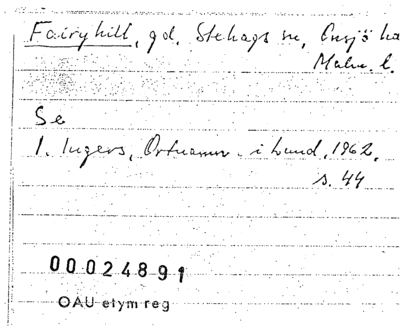 Fairyhill, gd. Stehags sn, Onsjö hd
Malm. l.
Se
I. Ingers, Ortnamn i Lund, 1962,
s. 44
00024891
OAU etym reg